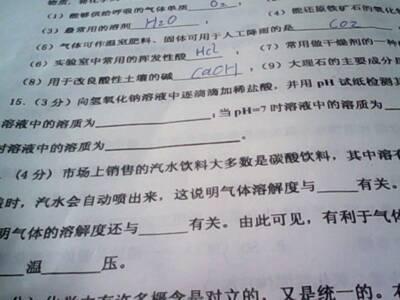 (1) 能够供给呼吸的气体单质 O₂ ,
(3) 最常用的溶剂 H₂O , (4) 能还原铁矿石的氧化物
(5) 气体可作温室肥料、固体可用于人工降雨的是 CO₂
(6) 实验室中常用的挥发性酸 HCl (7) 常用做干燥剂的一种
(8) 用于改良酸性土壤的碱 CaOH , (9) 大理石的主要成分
15. (3分) 向氢氧化钠溶液中逐滴滴加稀盐酸, 并用 pH 试纸检测其
溶液中的溶质为 ,当 pH=7 时溶液中的溶质为
时溶液中的溶质为 。
. (4 分) 市场上销售的汽水饮料大多数是碳酸饮料, 其中溶有
时, 汽水会自动喷出来, 这说明气体溶解度与 有关。
明气体的溶解度还与 有关。由此可见, 有利于气体
温 压。
化学中有许多概念是对立的, 又是统一的。